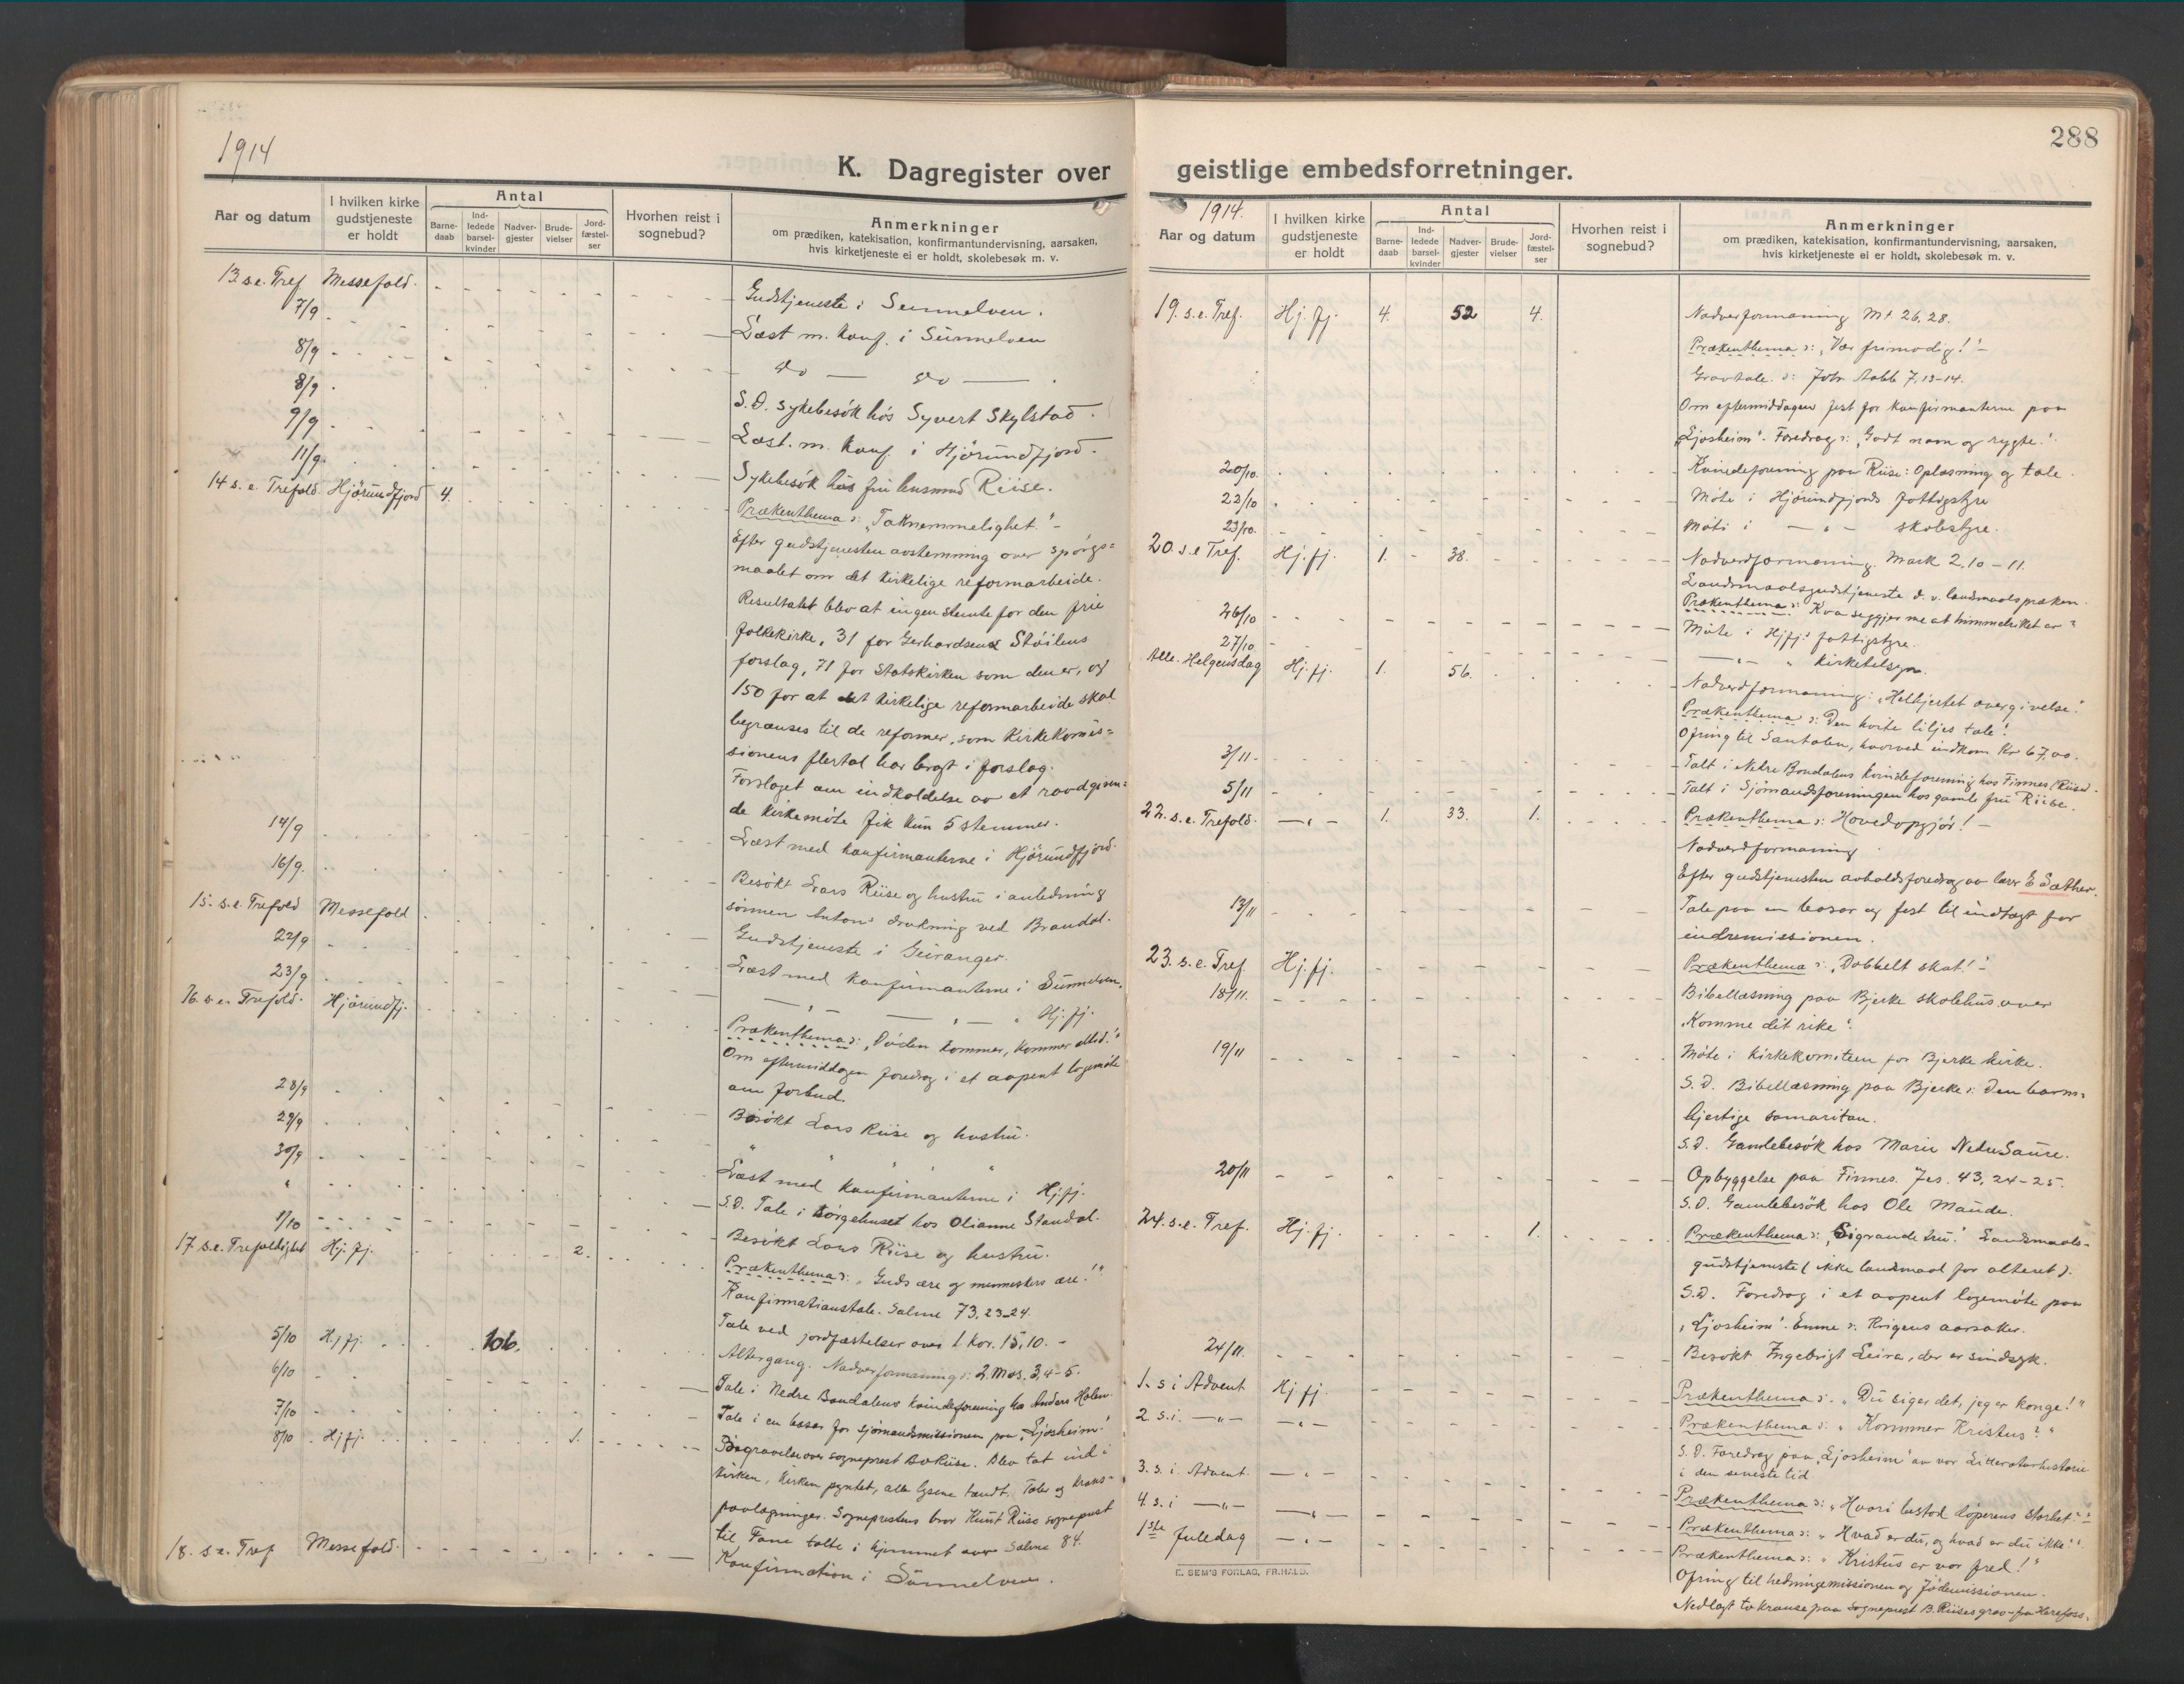 1914
K. Dagregister over
Aar og datum
I hvilken kirke gudstjeneste er holdt
Antal
Barne-daab
Ind-ledede barsel-kvinder
Nadver-gjester
Brude-vielser
Jord-fæstel-ser
Hvorhen reist i sognebud?
Anmerkninger
om prædiken, katekisation, konfirmantundervisning, aarsaken,
hvis kirketjeneste ei er holdt, skolebesøk m. v.
13. s.e. Tref Messefald. Gudstjeneste i Sunnelven.
7/9 Læst m. Konf. i Sunnelven
8/9 do — do —
8/9 S.D. sykebesök hos Syvert Skylstad.
9/9 Læst. m. Konf. i Hjörundfjord.
11/9 Sykebesök hos fru lensmand Riise.
14 s. e. Trefold. Hjörundfjord 4. Prækenthema ɔ: „Taknemmelighet." -
Efter gudstjenesten avstemming over spörgs=
maalet om det kirkelige reformarbeide.
Resultatet blev at ingen stemte for den frie
folkekirke, 31 for Gerhardsens Stöilens
forslag, 71 for Statskirken som den er, og
150 for at det kirkelige reformarbeide skal
begrænses til de reformer, som Kirkekomis=
sionens flertal har bragt i forslag.
Forslaget om indkaldelse av et raadgiven=
de kirkemöte fik kun 5 stemmer.
14/9 Læst med konfirmanterne i Hjörundfjord.
16/9. Besökt Lars Riise og hustru i anledning
sönnen Antons drukning ved Brandal.
15. s.e. Trefold Messefald Gudstjeneste i Geiranger.
22/9 Læst med Konfirmanterne i Sunnelven.
23/9 — „ — — „ — „ Hj.fj.
16. s.e. Trefold. Hjörundfj. Prækenthema ɔ: „Döden kommer, kommer altid."
Om eftermiddagen foredrag i et aapent logemöte
om forbud.
28/9 Besökt Lars Riise og hustru.
29/9 " " " " "
30/9 Læst med konfirmanterne i Hj.fj.
" S.D. Tale i sörgehuset hos Olianne Standal.
1/10 Besökt Lars Riise og hustru.
17. s.e. Trefoldighet Hj.fj. 2. Prækenthema ɔ: „Guds ære og menneskers ære!"
Konfirmationstale. Salme 73,23-24.
Tale ved jordfæstelser over 1 Kor. 15,10. -
5/10 Hj.fj. 106. Altergang. Nadverformaning ɔ: 2 Mos. 3,4-5.
6/10 Tale i Nedre Bondalens kvindeforening hos Anders Holen.
7/10 Tale i en basar for sjömandsmissionen paa „Ljosheim".
8/10 Hj.fj. 1. Begravelse over sogneprest Bo Riise. Blev tat ind i
kirken, kirken pyntet, alle lysene tændt. Taler og krans=
paalægninger. Sogneprestens bror Knut Riise sogneprest
til Fane talte i hjemmet over salme 84.
18. s.e. Tref Messefald. Konfirmation i Sunnelven.
288
geistlige embedsforretninger.
1914.
Aar og datum
I hvilken kirke gudstjeneste er holdt
Antal
Barne-daab
Ind-ledede barsel-kvinder
Nadver-gjester
Brude-vielser
Jord-fæstel-ser
Hvorhen reist i sognebud?
Anmerkninger
om prædiken, katekisation, konfirmantundervisning, aarsaken,
hvis kirketjeneste ei er holdt, skolebesøk m. v.
19. s.e. Tref. Hj.fj. 4. 52 4. Nadverformaning Mt 26,28.
Prækenthema ɔ: „Vær frimodig!" -
Gravtale. ɔ: Joh Aabb 7,13-14.
Om eftermiddagen fest for konfirmanterne paa
„Ljosheim". Foredrag ɔ: „Godt navn og rygte."
20/10. Kvindeforening paa Riise: Oplæsning og tale.
23/10 Möte i Hjörundfjords fattigstyre
23/10. Möte i — „ — skolestyre.
20. s.e Tref. Hj.fj. 1. 38. Nadverdformaning. Mark 2,10-11.
Landsmaalsgudstjeneste d. v. landsmaalspræken.
Prækenthema ɔ: Kva seggjer me at himmelriket er?
26/10 Möte i Hj.fj.s fattigstyre.
27/10. — „ — " kirketilsyn.
Alle. Helgensdag Hj.fj. 1. 56. Nadverdformaning: „Helhjertet overgivelse".
Prækenthema ɔ: Den hvite liljes tale!
Ofring til Santalen, hvorved indkom Kr 67,00.
3/11. Talt i Nedre Bondalens kvindeforening hos Finnes (Riise).
5/11 Talt i Sjömandsforeningen hos gamle fru Riise.
22. s.e. Trefold. — „ — 1. 33. 1. Prækenthema ɔ: Hovedopgjör! -
Nadverdformaning
Efter gudstjenesten avholds foredrag av lærer E Sæther.
13/11 Tale paa en basar og fest til indtægt for
indremissionen.
23. s.e. Tref Hj.fj. Prækenthema ɔ: „Dobbelt skat!" -
18/11. Bibellæsning paa Bjerke skolehus over
„Komme dit rike".
19/11 Möte i kirkekomiteen for Bjerke kirke.
S.D. Bibellæsning paa Bjerke ɔ: Den barm=
hjertige samaritan.
S.D. Gamlebesök hos Marie Nedre Saure.
20/11 Opbyggelse paa Finnes. Jes. 43,24-25.
S.D. Gamlebesök hos Ole Maude.
24. s.e. Tref. Hj.fj. 1. Prækenthema ɔ: „Sigrande tru." Landsmaals-
gudstjeneste (ikke landsmaal for alteret).
S.D. Foredrag i et aapent logemöte paa
„Ljosheim". Emne ɔ: Krigens aarsaker.
24/11. Besökt Ingebrigt Leira, der er sindsyk.
1. s i Advent Hj.fj. Prækenthema ɔ: „Du siger det, jeg er konge!"
2. s.i. — „ — — „ — Prækenthema ɔ: „Kommer Kristus?"
S.D. Foredrag paa „Ljosheim" av vor Litteraturhistorie
i den seneste tid
3. s. i. Advent. — „ — Prækenthema ɔ: „Hvori bestod döperens storhet?"
4. s. i — „ — — „ — Prækenthema ɔ: „Hvad er du, og hvad er du ikke?"
1ste Juledag — „ — Prækenthema ɔ: „Kristus er vor fred!"
Ofring til hedningemissionen og Jödemissionen.
Nedlagt to kranse paa Sogneprest B. Riises grav fra Herefoss.
E. SEM'S FORLAG, FR.HALD.